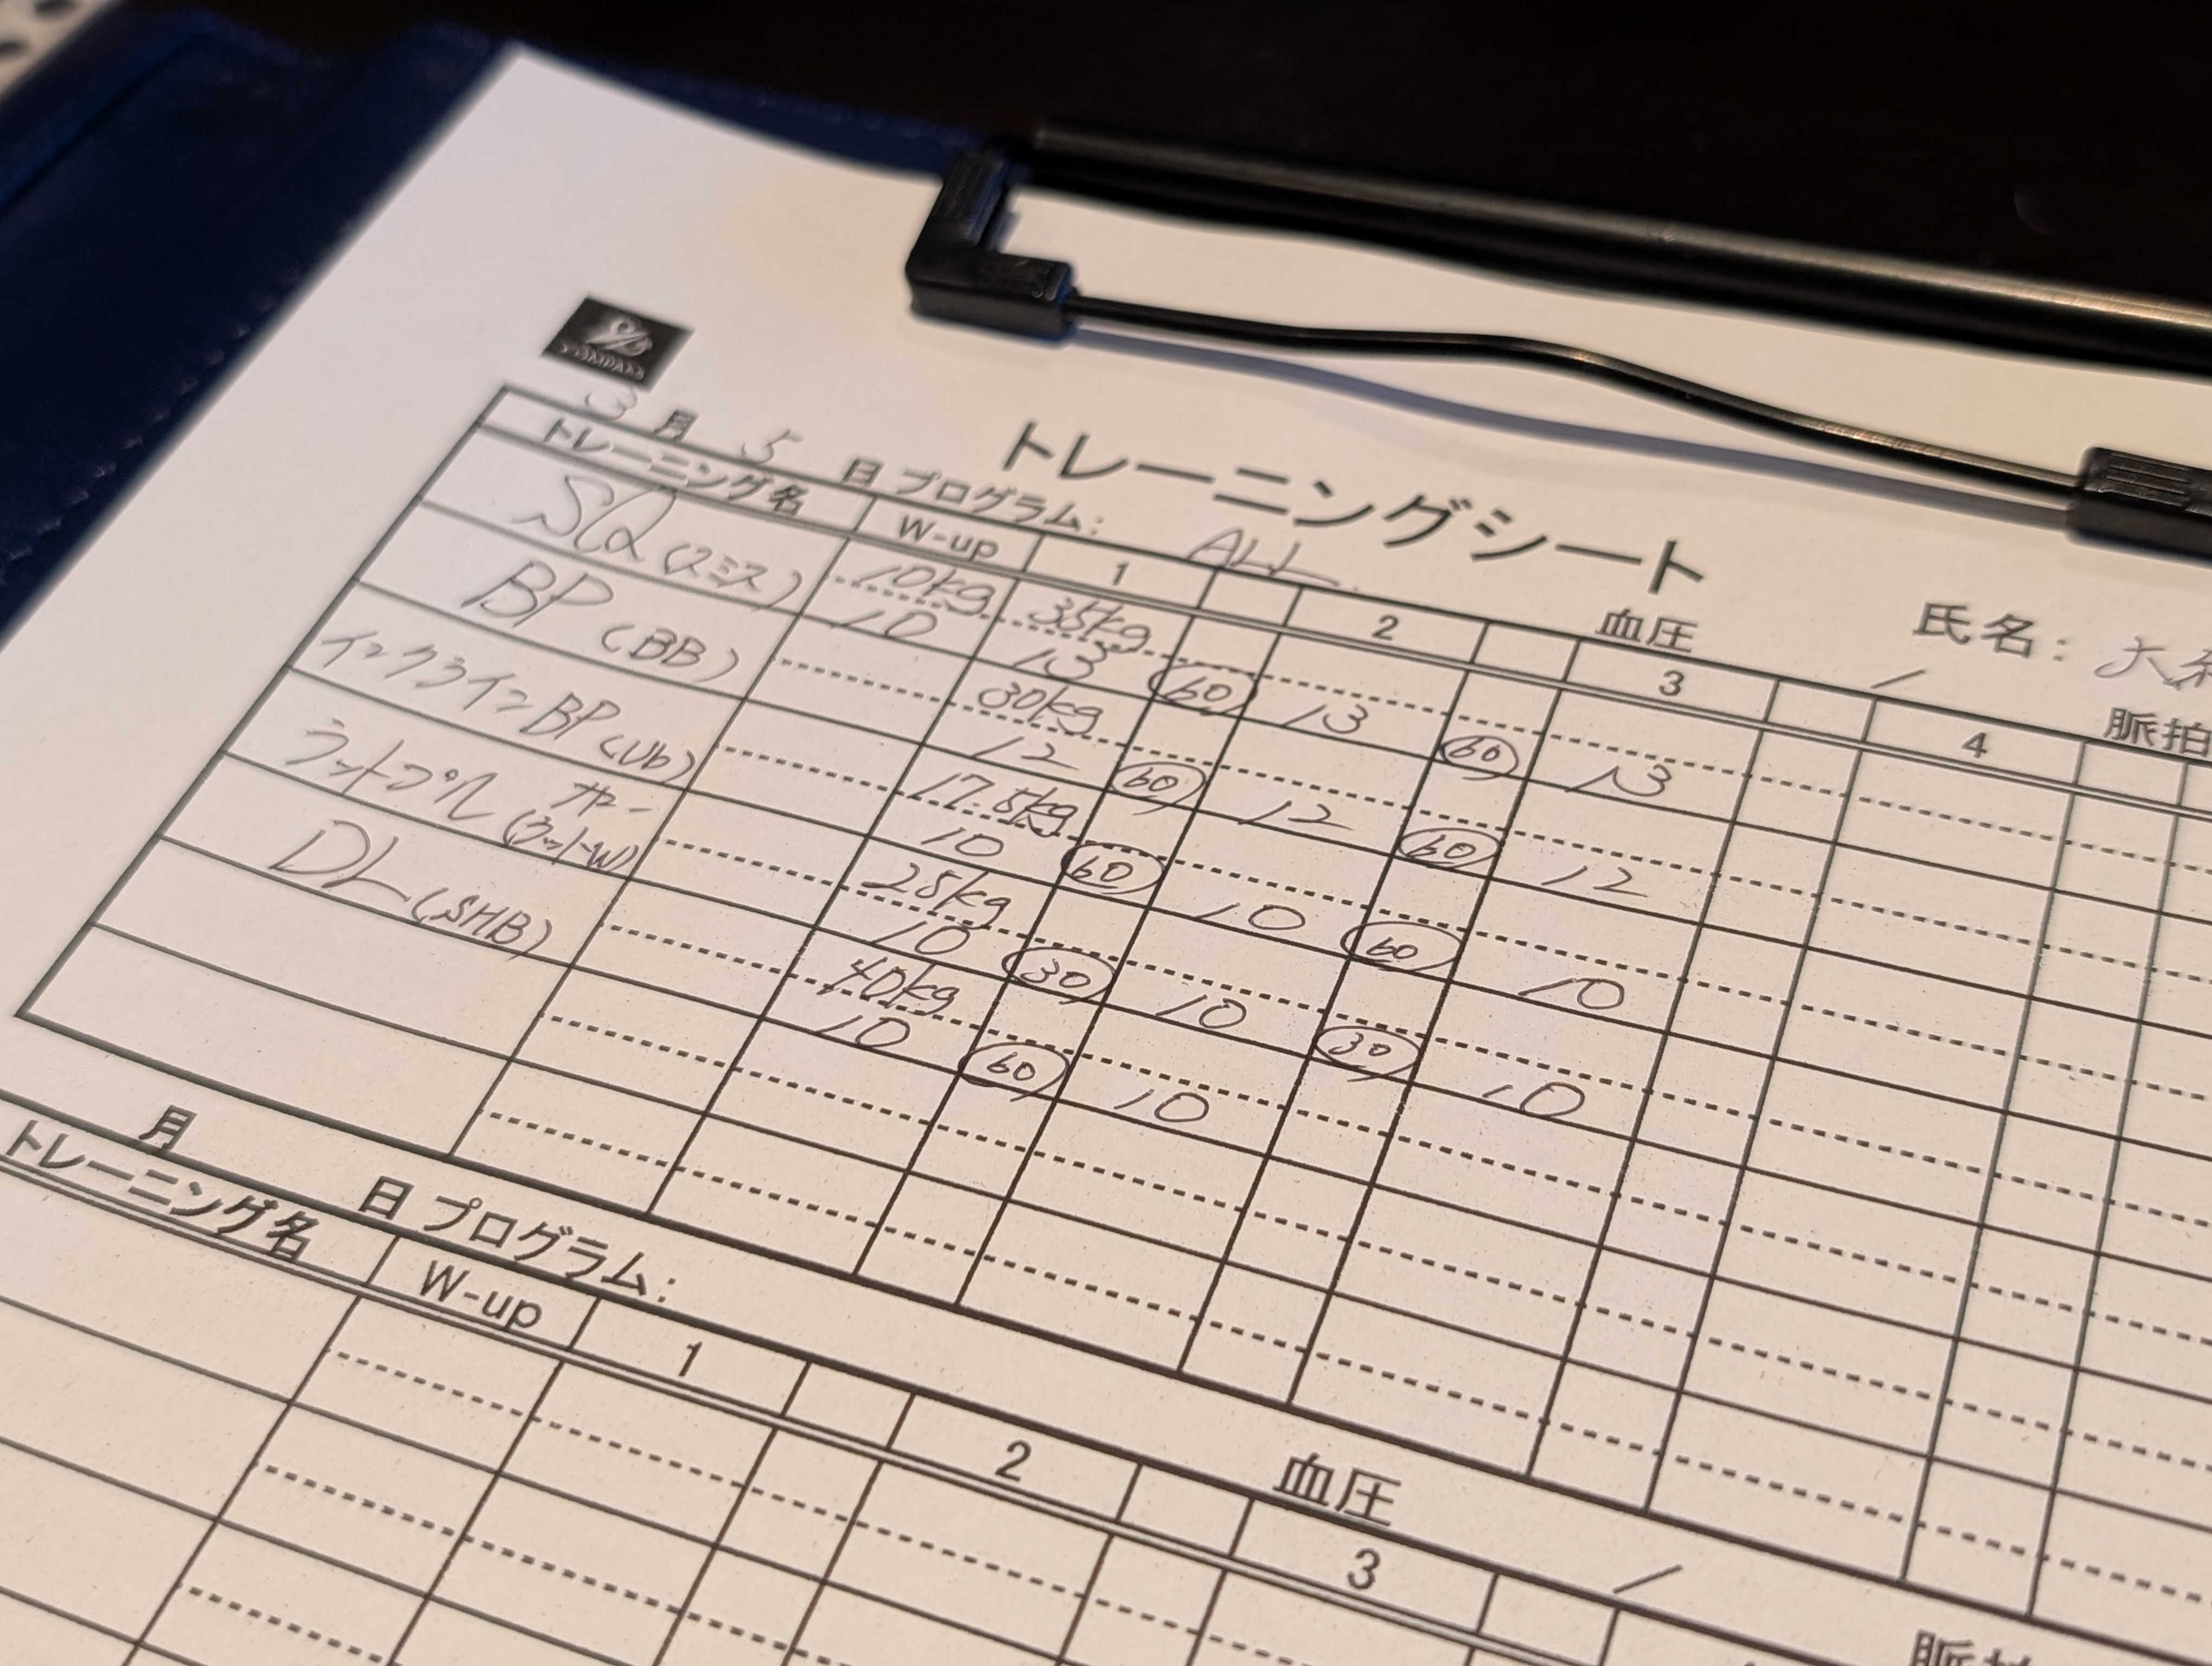 トレーニングシート
3月5日 プログラム: ALL. 血圧 / 氏名: 大 脈拍
トレーニング名 W-up 1 2 3 4
SQ(スミス) 10kg 35kg
10 13 60 13 60 13
BP(BB) 30kg
12 60 12 60 12
インクラインBP 17.5kg
10 60 10 60 10
ラットプル (ラットW) 25kg
10 30 10 30 10
DL(SHB) 40kg
10 60 10
月 日 プログラム: 血圧 / 脈拍
トレーニング名 W-up 1 2 3